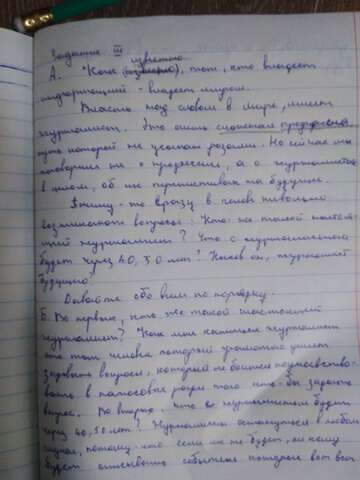 Задание III
известно
А. "Как (извесно), тот, кто владеет
информацией - владеет миром.
Власть над словом в мире, имеет
журналист. Это очень сложная профессия,
путь которой не усыпан розами. Но сейчас мы
поговорим не о профессии, а о журналистике
в целом, об их перспективах на будущее.
Почему-то сразу в голове
вопросы. Кто же такой настоя-
щий журналист? Что с журналистикой
будет через 40, 50 лет? Каков он, журналист
будущего?
Давайте обо всем по порядку.
Б. Во первых, кто же такой настоящий
журналист? Как мне кажется журналист
это тот человек, который грамотно умеет
задавать вопросы, который не боится
в голосовые ради того что-бы задать
вопрос. Во вторых, что с журналистикой будет
через 40, 50 лет? Журналисты останутся в любом
случае, потому-что если их не будет, то кому
будет описывать события которые вот-вот